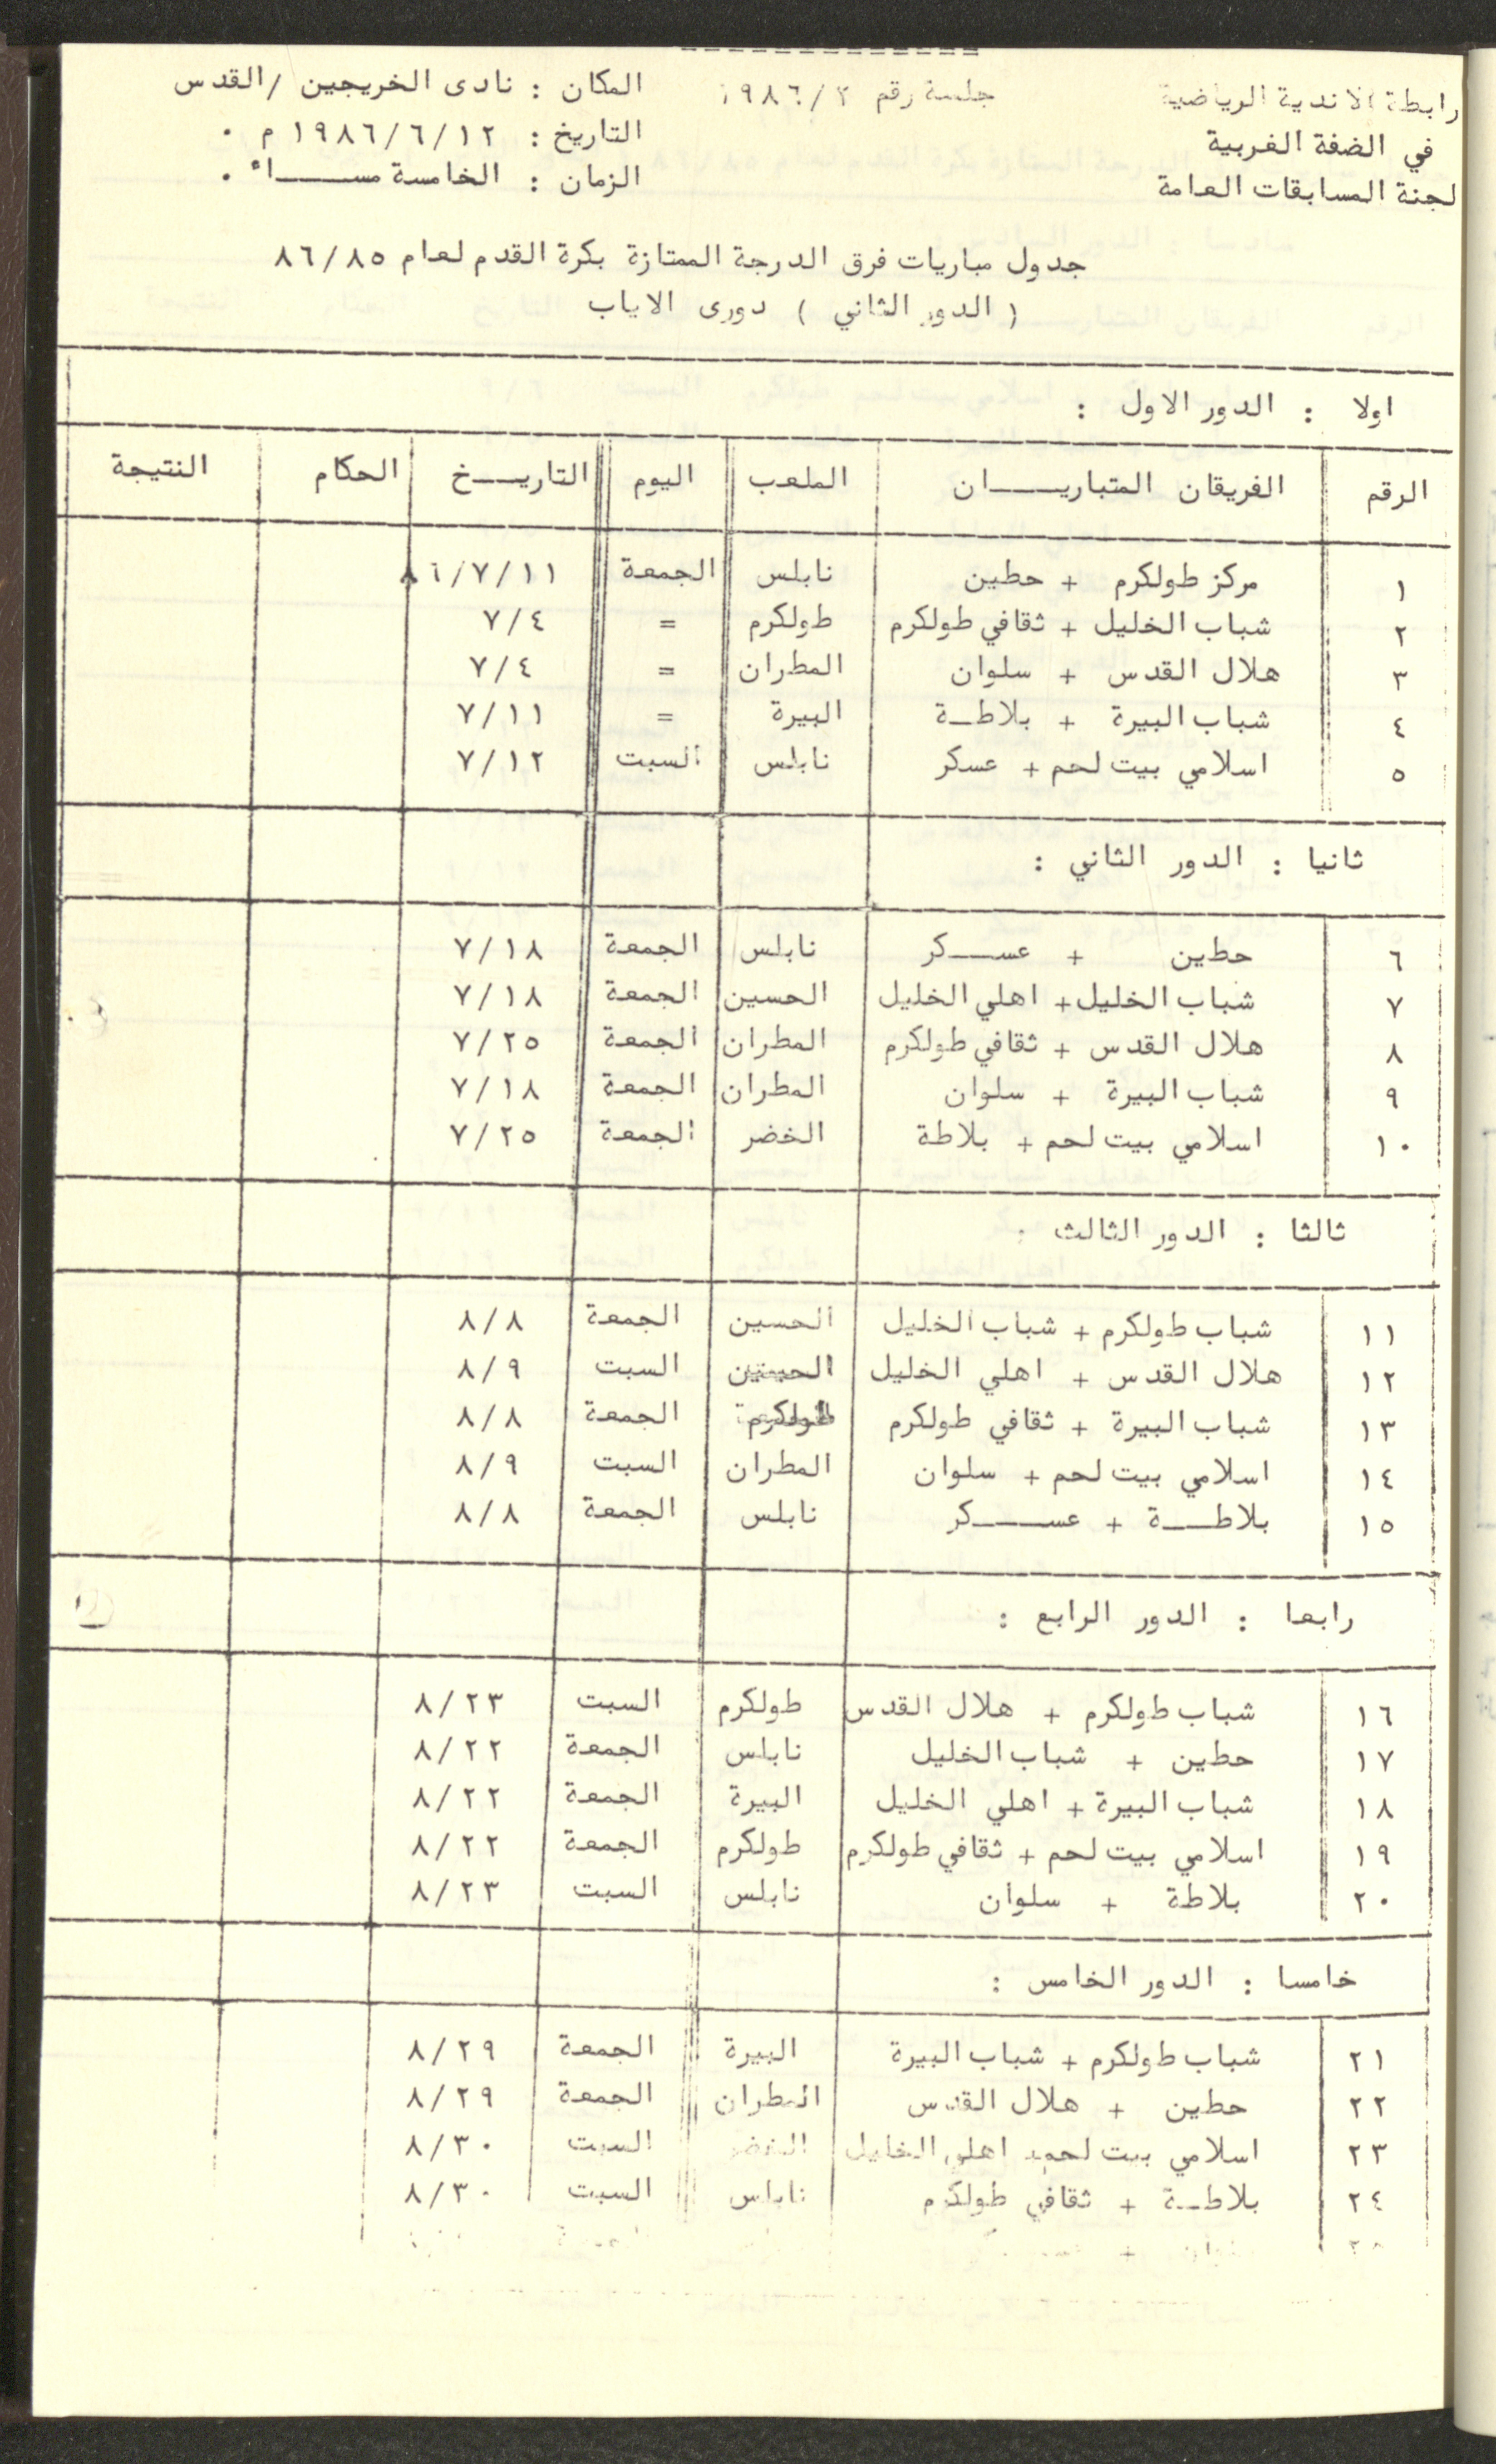 رابطة الاندية الرياضية    جلسة رقم ١٩٨٦/٢    المكان : نادى الخريجين /القدس
في الضفة الغربية    التاريخ : ١٩٨٦/٦/١٢ م ٠
لجنة المسابقات العامة    الزمان : الخامسة مســـاء ٠
جدول مباريات فرق الدرجة الممتازة بكرة القدم لعام ٨٦/٨٥
( الدور الثاني ) دورى الاياب
اولا : الدور الاول :
الرقم    الفريقان المتباريـــان    الملعب    اليوم    التاريــخ    الحكام    النتيجة
١    مركز طولكرم + حطين    نابلس    الجمعة    ٨٦/٧/١١
٢    شباب الخليل + ثقافي طولكرم    طولكرم    =    ٧/٤
٣    هلال القدس + سلوان    المطران    =    ٧/٤
٤    شباب البيرة + بلاطـة    البيرة    =    ٧/١١
٥    اسلامي بيت لحم + عسكر    نابلس    السبت    ٧/١٢
ثانيا : الدور الثاني :
٦    حطين + عســكر    نابلس    الجمعة    ٧/١٨
٧    شباب الخليل+ اهلي الخليل    الحسين    الجمعة    ٧/١٨
٨    هلال القدس + ثقافي طولكرم    المطران    الجمعة    ٧/٢٥
٩    شباب البيرة + سلوان    المطران    الجمعة    ٧/١٨
١٠    اسلامي بيت لحم + بلاطة    الخضر    الجمعة    ٧/٢٥
ثالثا : الدور الثالث :
١١    شباب طولكرم + شباب الخليل    الحسين    الجمعة    ٨/٨
١٢    هلال القدس + اهلي الخليل    الحسين    السبت    ٨/٩
١٣    شباب البيرة + ثقافي طولكرم    طولكرم    الجمعة    ٨/٨
١٤    اسلامي بيت لحم + سلوان    المطران    السبت    ٨/٩
١٥    بلاطــة + عســـكر    نابلس    الجمعة    ٨/٨
رابعا : الدور الرابع :
١٦    شباب طولكرم + هلال القدس    طولكرم    السبت    ٨/٢٣
١٧    حطين + شباب الخليل    نابلس    الجمعة    ٨/٢٢
١٨    شباب البيرة + اهلي الخليل    البيرة    الجمعة    ٨/٢٢
١٩    اسلامي بيت لحم + ثقافي طولكرم    طولكرم    الجمعة    ٨/٢٢
٢٠    بلاطة + سلوان    نابلس    السبت    ٨/٢٣
خامسا : الدور الخامس :
٢١    شباب طولكرم + شباب البيرة    البيرة    الجمعة    ٨/٢٩
٢٢    حطين + هلال القدس    المطران    الجمعة    ٨/٢٩
٢٣    اسلامي بيت لحم اهلي الخليل    الخضر    السبت    ٨/٣٠
٢٤    بلاطـة + ثقافي طولكرم    نابلس    السبت    ٨/٣٠